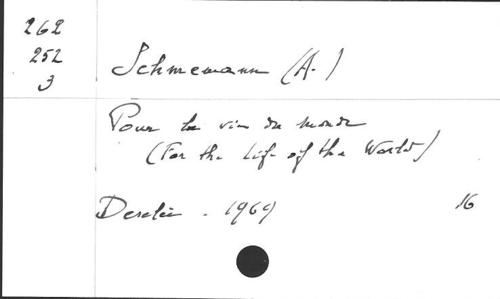 262
252
3
Schmemann (A.)
Pour la vie du monde
(For the Life of the World)
Desclée . 1969
16